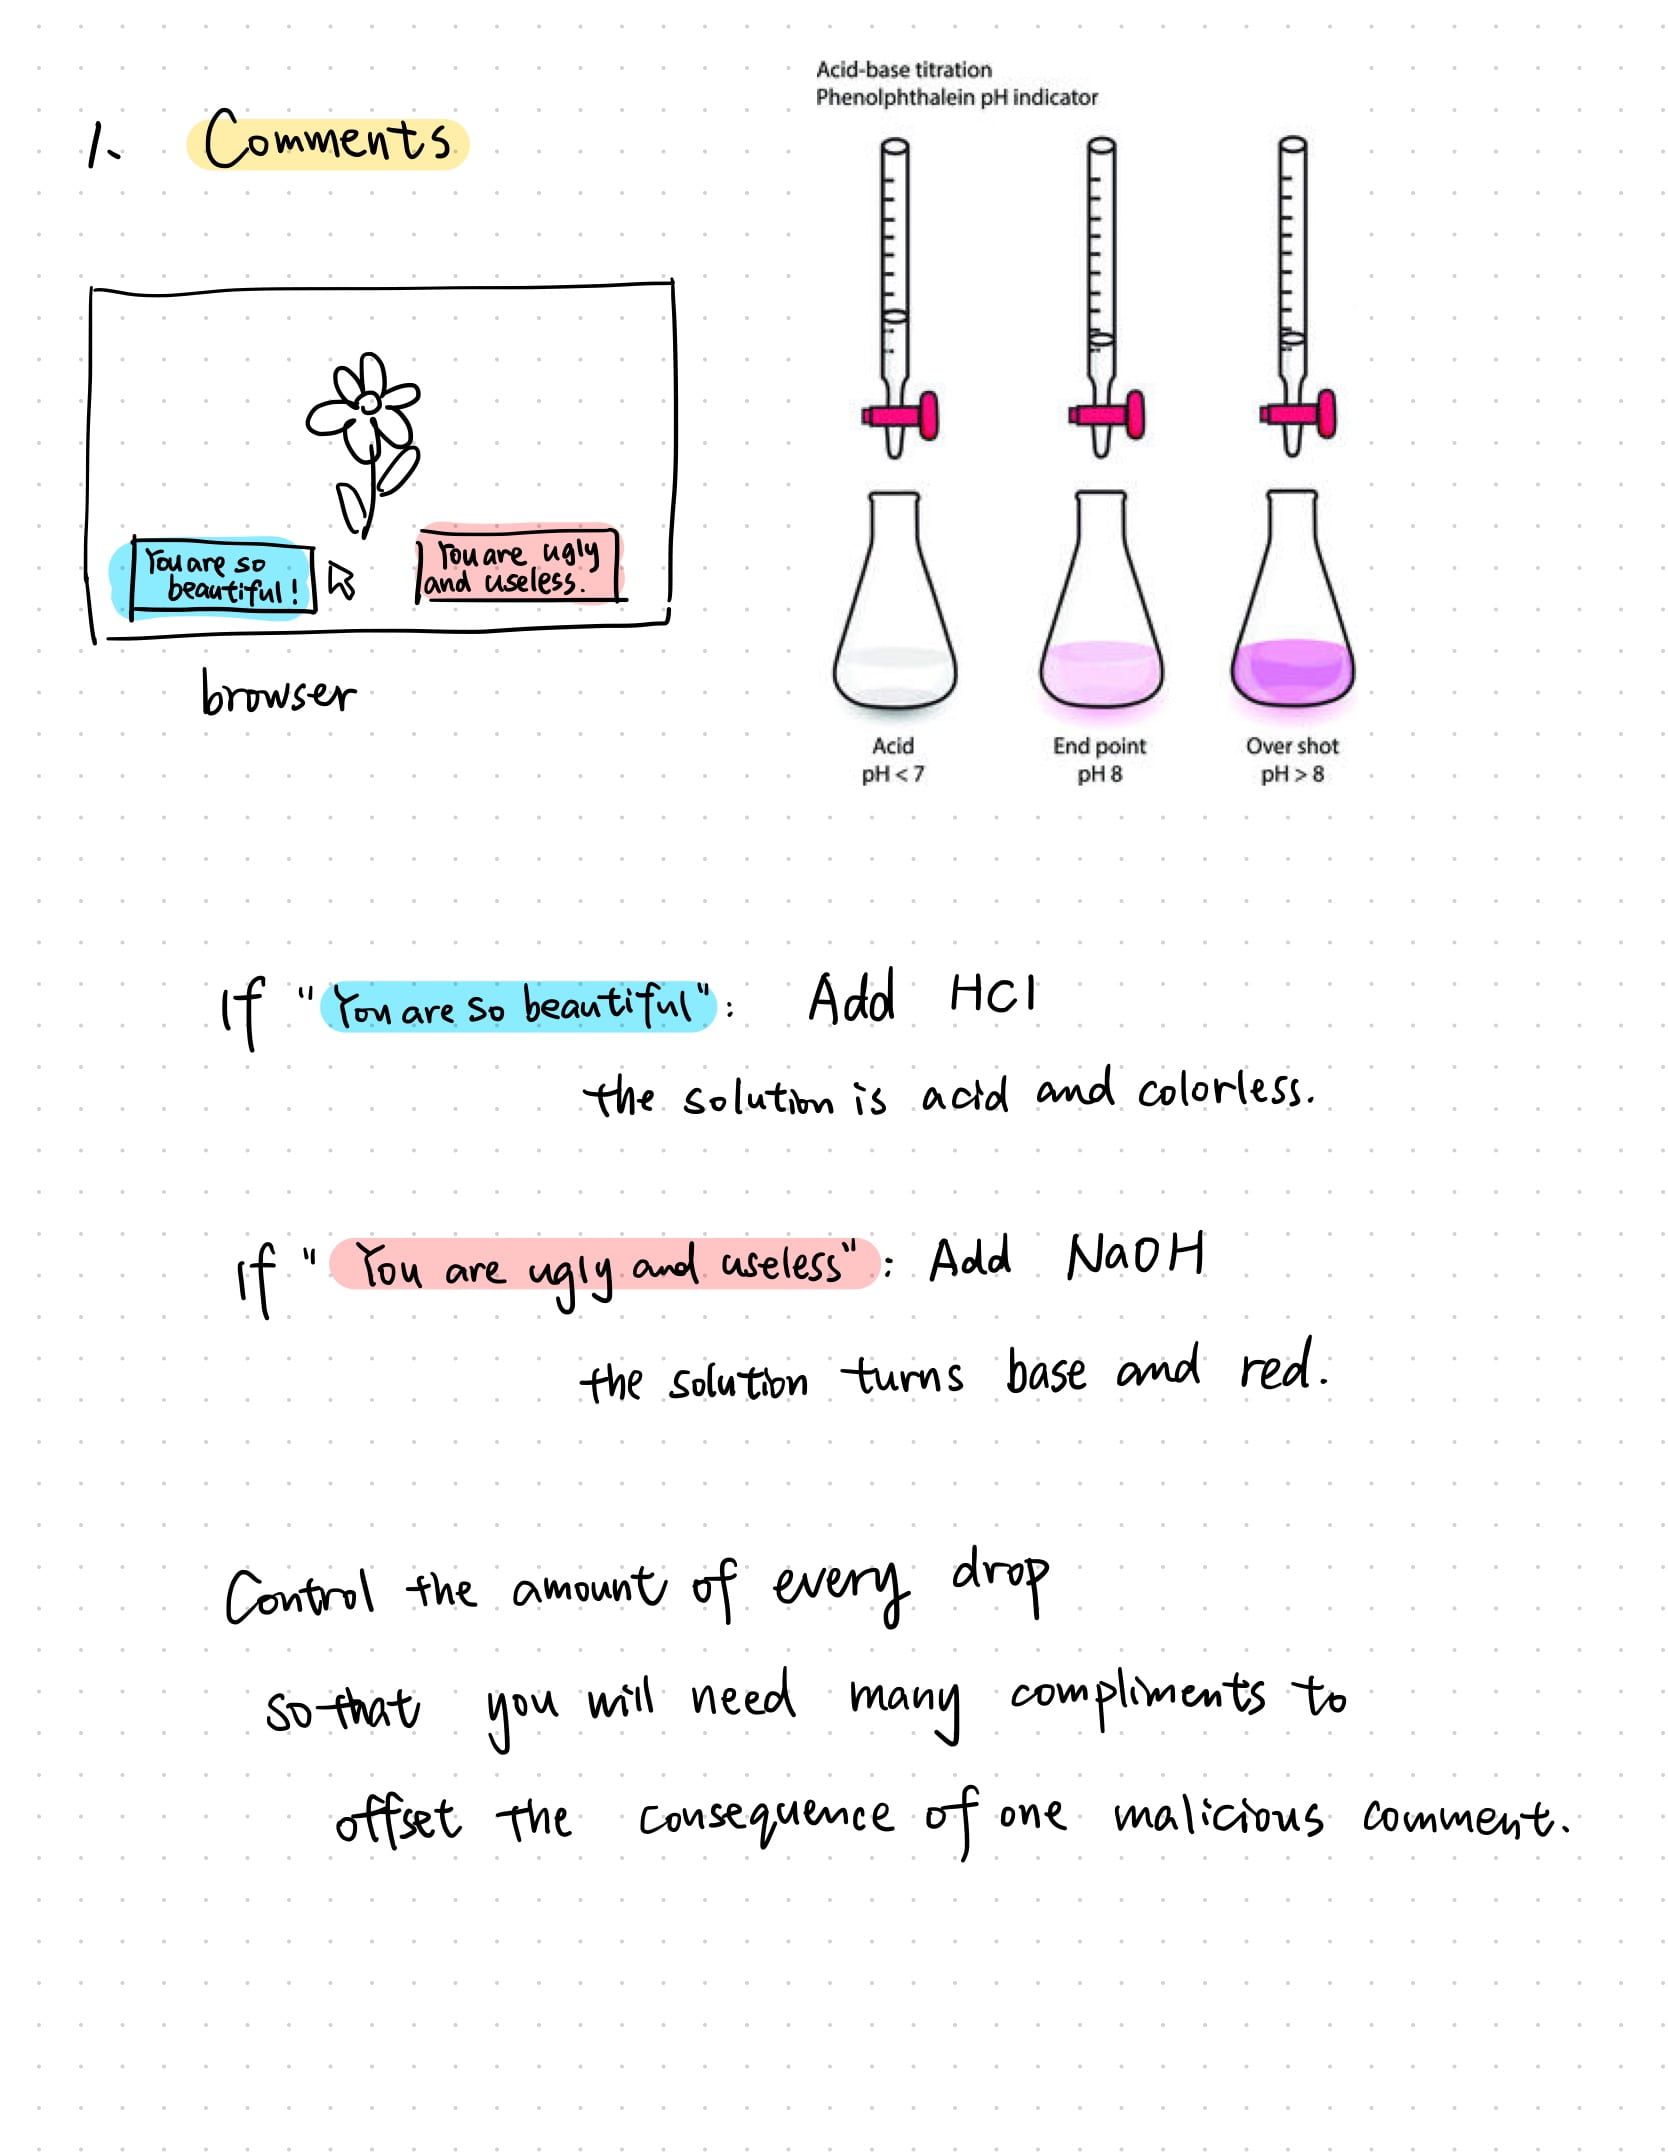 1. Comments
Acid-base titration
Phenolphthalein pH indicator
You are so
beautiful!
You are ugly
and useless.
browser
Acid
pH < 7
End point
pH 8
Over shot
pH > 8
If "You are so beautiful": Add HCl
the solution is acid and colorless.
If "You are ugly and useless": Add NaOH
the solution turns base and red.
Control the amount of every drop
so that you will need many compliments to
offset the consequence of one malicious comment.